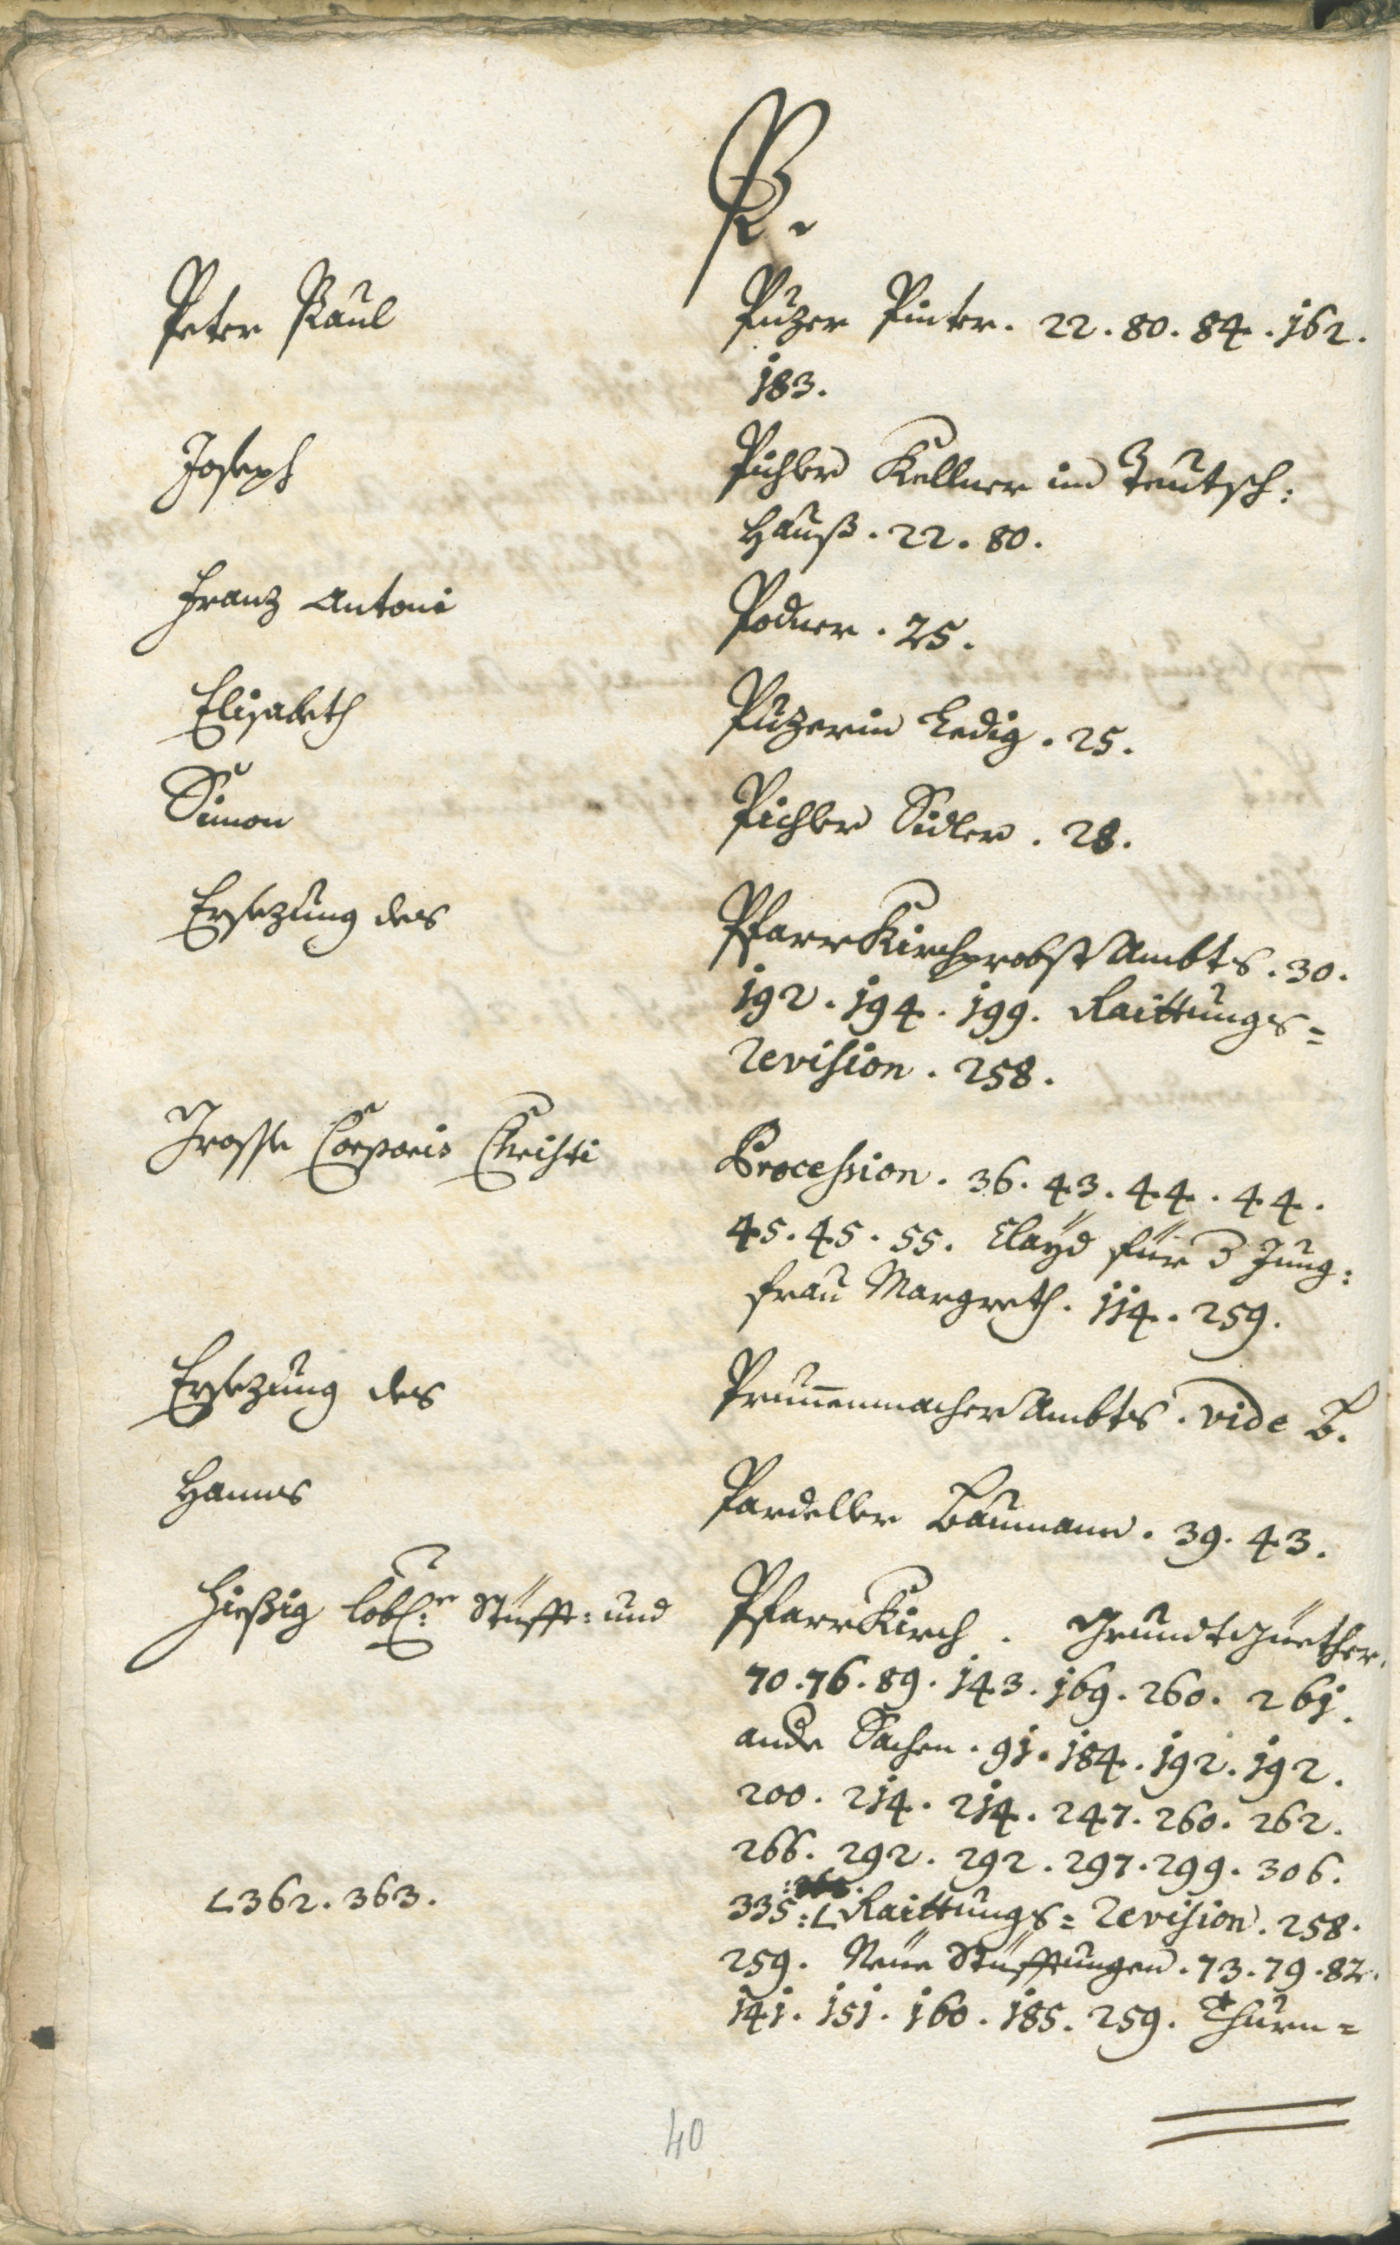 P.
Peter Paul Puzer Pinter. 22. 80. 84. 162.
183.
Joseph Pichler Kellner im Teutsch:
Hauß. 22. 80.
Franz Antoni Podner. 25.
Elisabeth Puzerin Ledig. 25.
Simon Pichler Sidler. 28.
Ersezung des PfarrKirchprobst Ambts. 30.
192. 194. 199. Raittungs=
Revision. 258.
Grosse Corporis Christi Procession. 36. 43. 44. 44.
45. 45. 55. Clayd für d Jung:
frau Margreth. 114. 259.
Ersezung des Prunenmacher Ambts. vide B.
Hanns Pardeller Baumann. 39. 43.
Hießig lobl:r Stüfft: und PfarrKirch. Grundtgüether.
70. 76. 89. 143. 169. 260. 261.
andre Sachen. 91. 184. 192. 192.
200. 214. 214. 247. 260. 262.
266. 292. 292. 297. 299. 306.
L 362. 363. 335: L Raittungs= Revision. 258.
259. Neue Stüfftungen. 73. 79. 82.
141. 151. 160. 185. 259. Thurn=
40